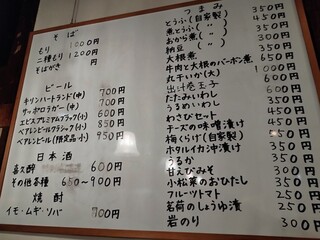 そば
もり 1000円
二種もり 1200円
そばがき 円
ビール
キリンハートランド(中) 700円
サッポロラガー(中) 700円
エビスプレミアムブラック(小) 600円
ベアレンビールクラシック(小) 850円
ベアレンビール(限定品 小) 950円
日本酒
喜久酔 600円
その他各種 650〜900円
焼酎
イモ・ムギ・ソバ 700円
つまみ
とうふ(自家製) 350
煮とうふ(〃) 450
おから煮(〃) 350
納豆
大根煮 650
牛肉と大根のバーボン煮 1000
丸干いか(大) 600
出汁巻玉子
たたみいわし 350
うるめいわし 350
わさびセット
チーズの味噌漬け 450
梅くらげ(自家製) 350
ホタルイカ沖漬け 350
うるか 350
甘えびみそ 300
小松菜のおひたし 350
フルーツトマト 250
茗荷のしょうゆ漬 250
岩のり 300